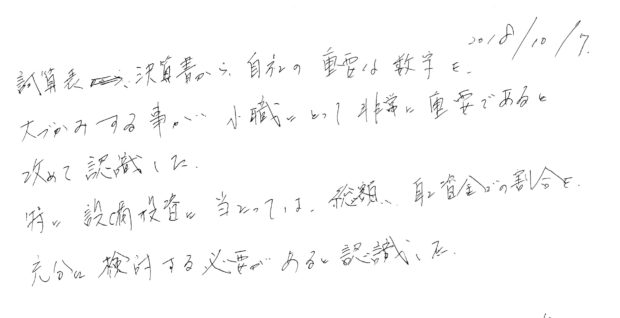 2018/10/7.
試算表、決算書から、自社の重要な数字を
大づかみする事が、小職にとって非常に重要であると
改めて認識した。
特に設備投資に当たっては、総額、自己資金との割合を、
充分に検討する必要があると認識した。